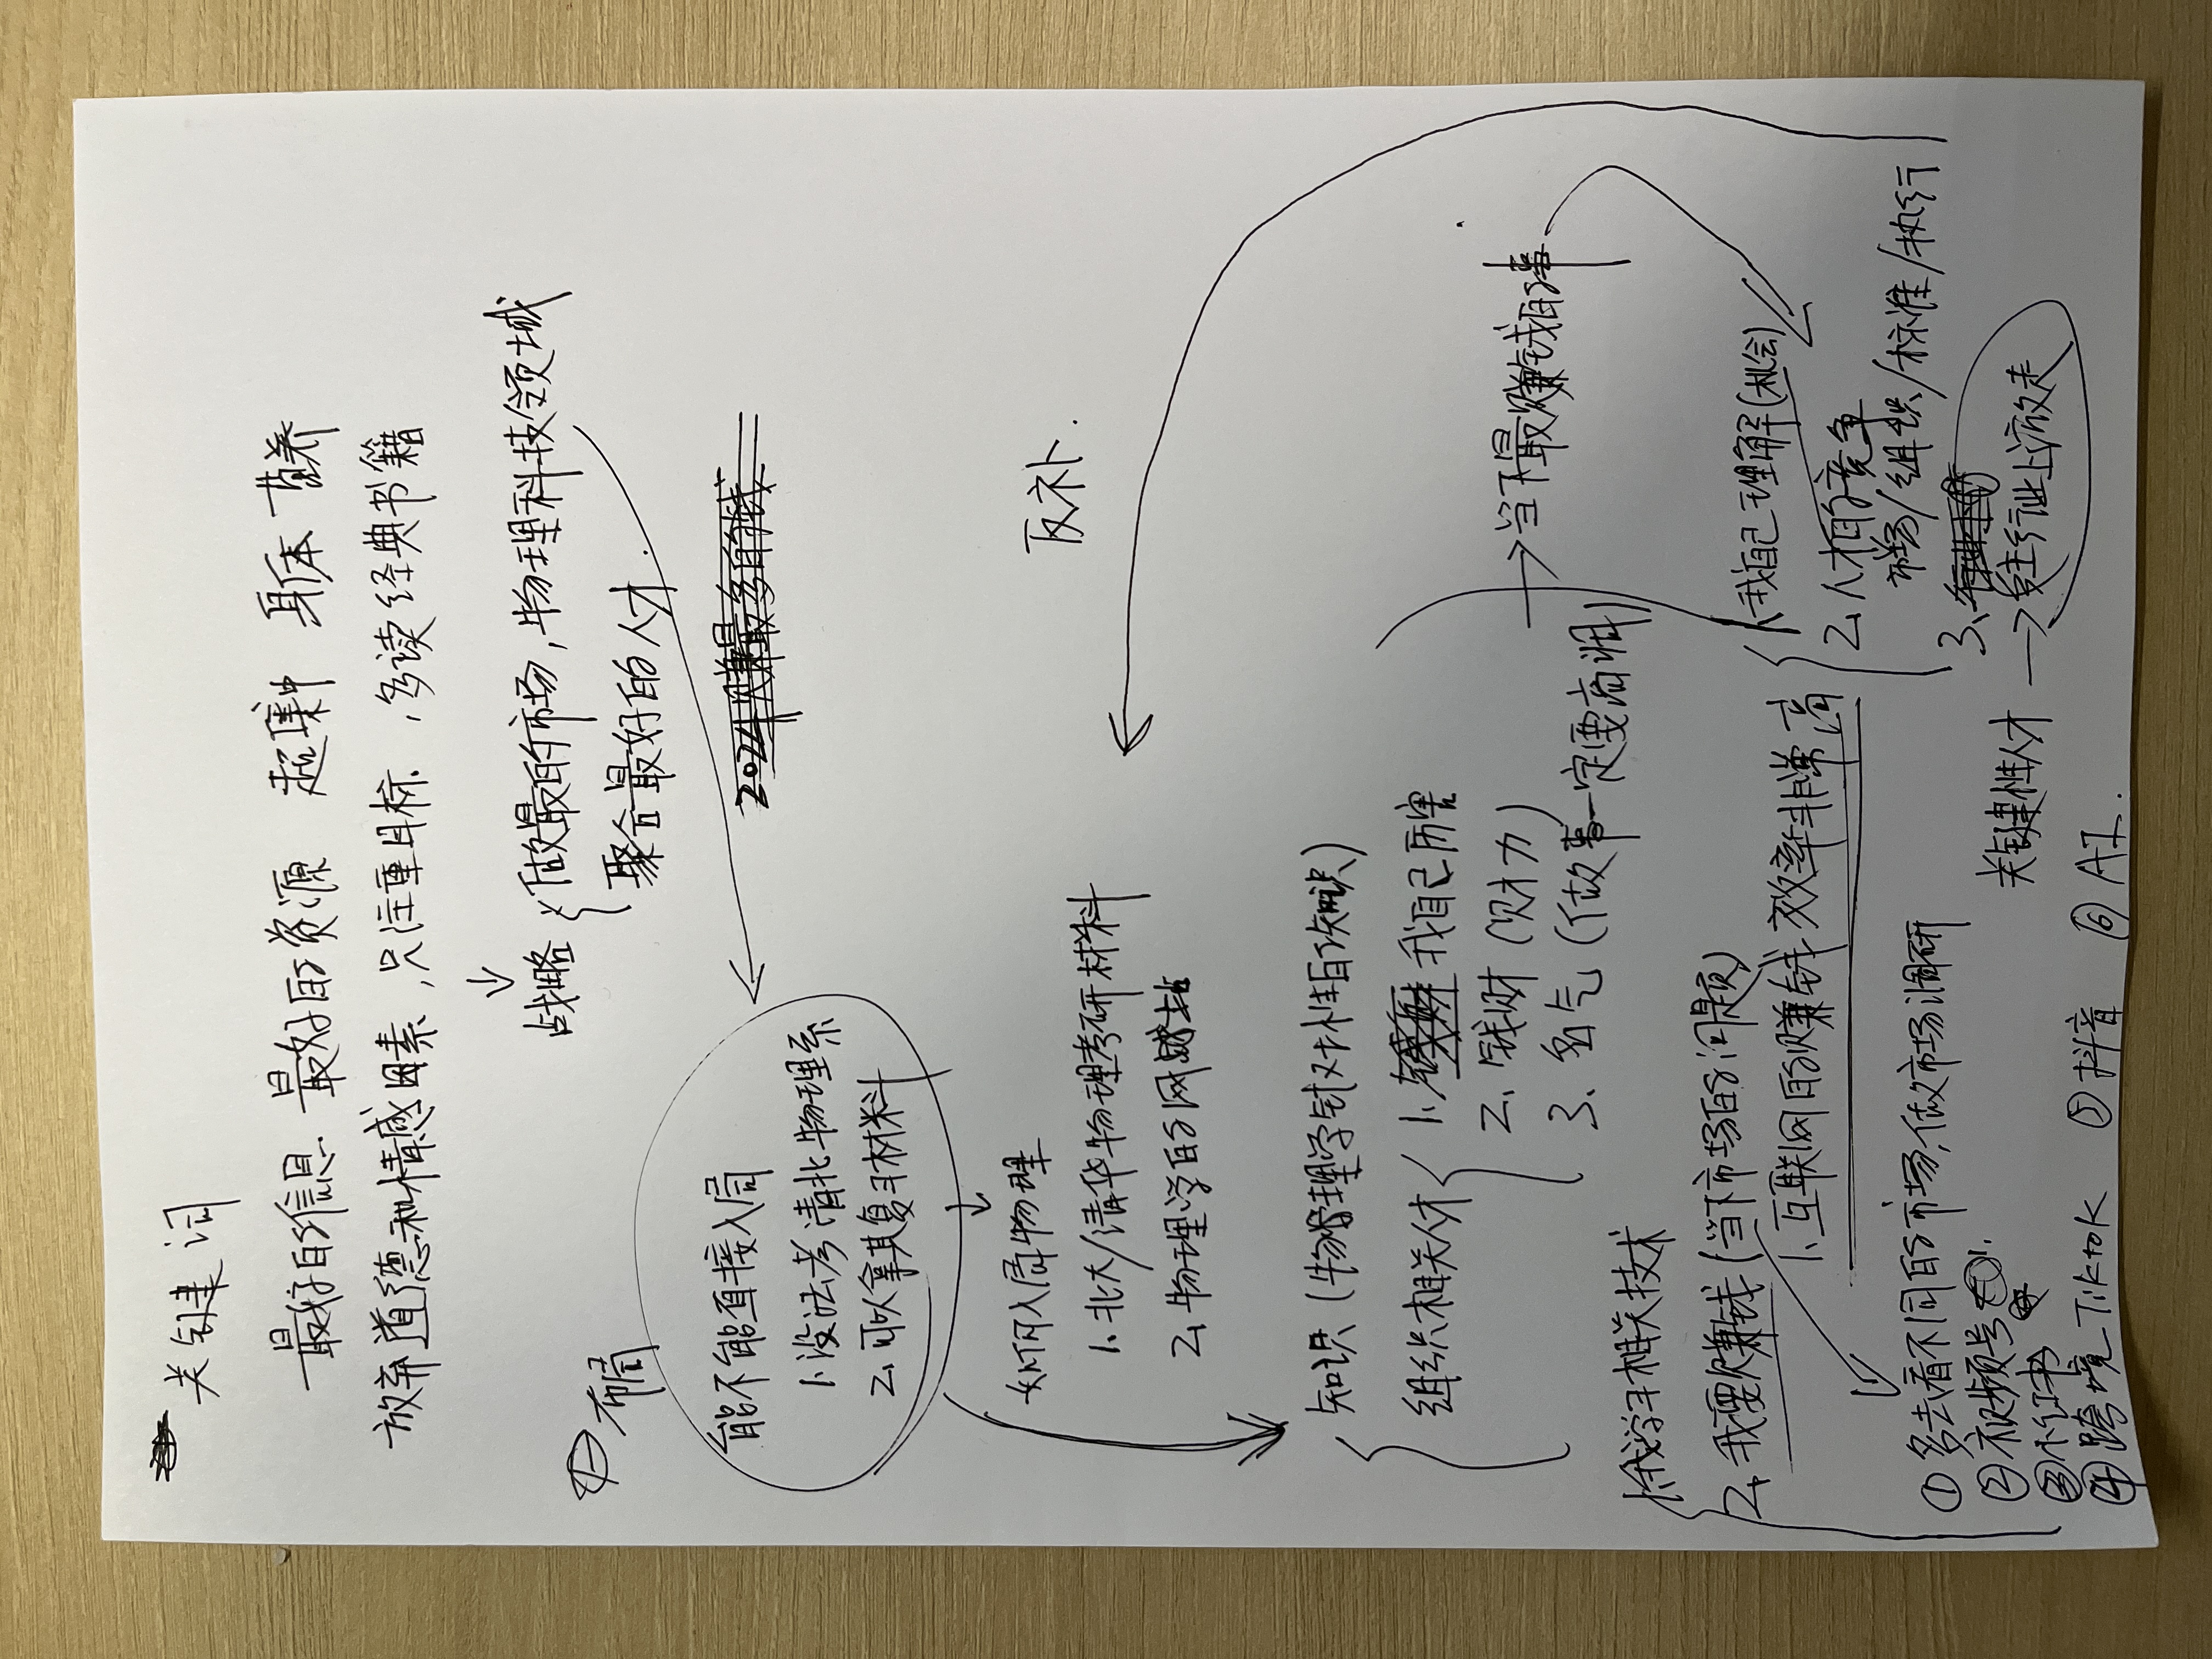 关键词
最好的信息 最好的资源 超集中 身体 营养
放弃道德和情感因素,只注重目标,多读经典书籍
战略 做最的市场,物理科技领域
聚合最好的人才.
布局
2024年赚最多的钱
能不能直接入局
1.没法考清北物理系
2.可以拿其复习材料
如何入局物理
1.北大/清华物理考研材料
2.物理学的网站
反补.
知识(物理学针对性的知识)
组织相关人才
1.我自己厉害
2.钱财(财力)
3.名气(做事一定要高调)
当下最赚钱的事
1.我学习相关技术
2.我要赚钱(当下市场的问题)
1.互联网的赚钱效率非常高
①多去看不同的市场,做市场调研
②视频号
③小红书
④跨境Tiktok ⑤抖音 ⑥AI.
1.我自己理解(机会)
2.人才的竞争
市场/组织/标准/执行
3.
关键性人才
行业上游走